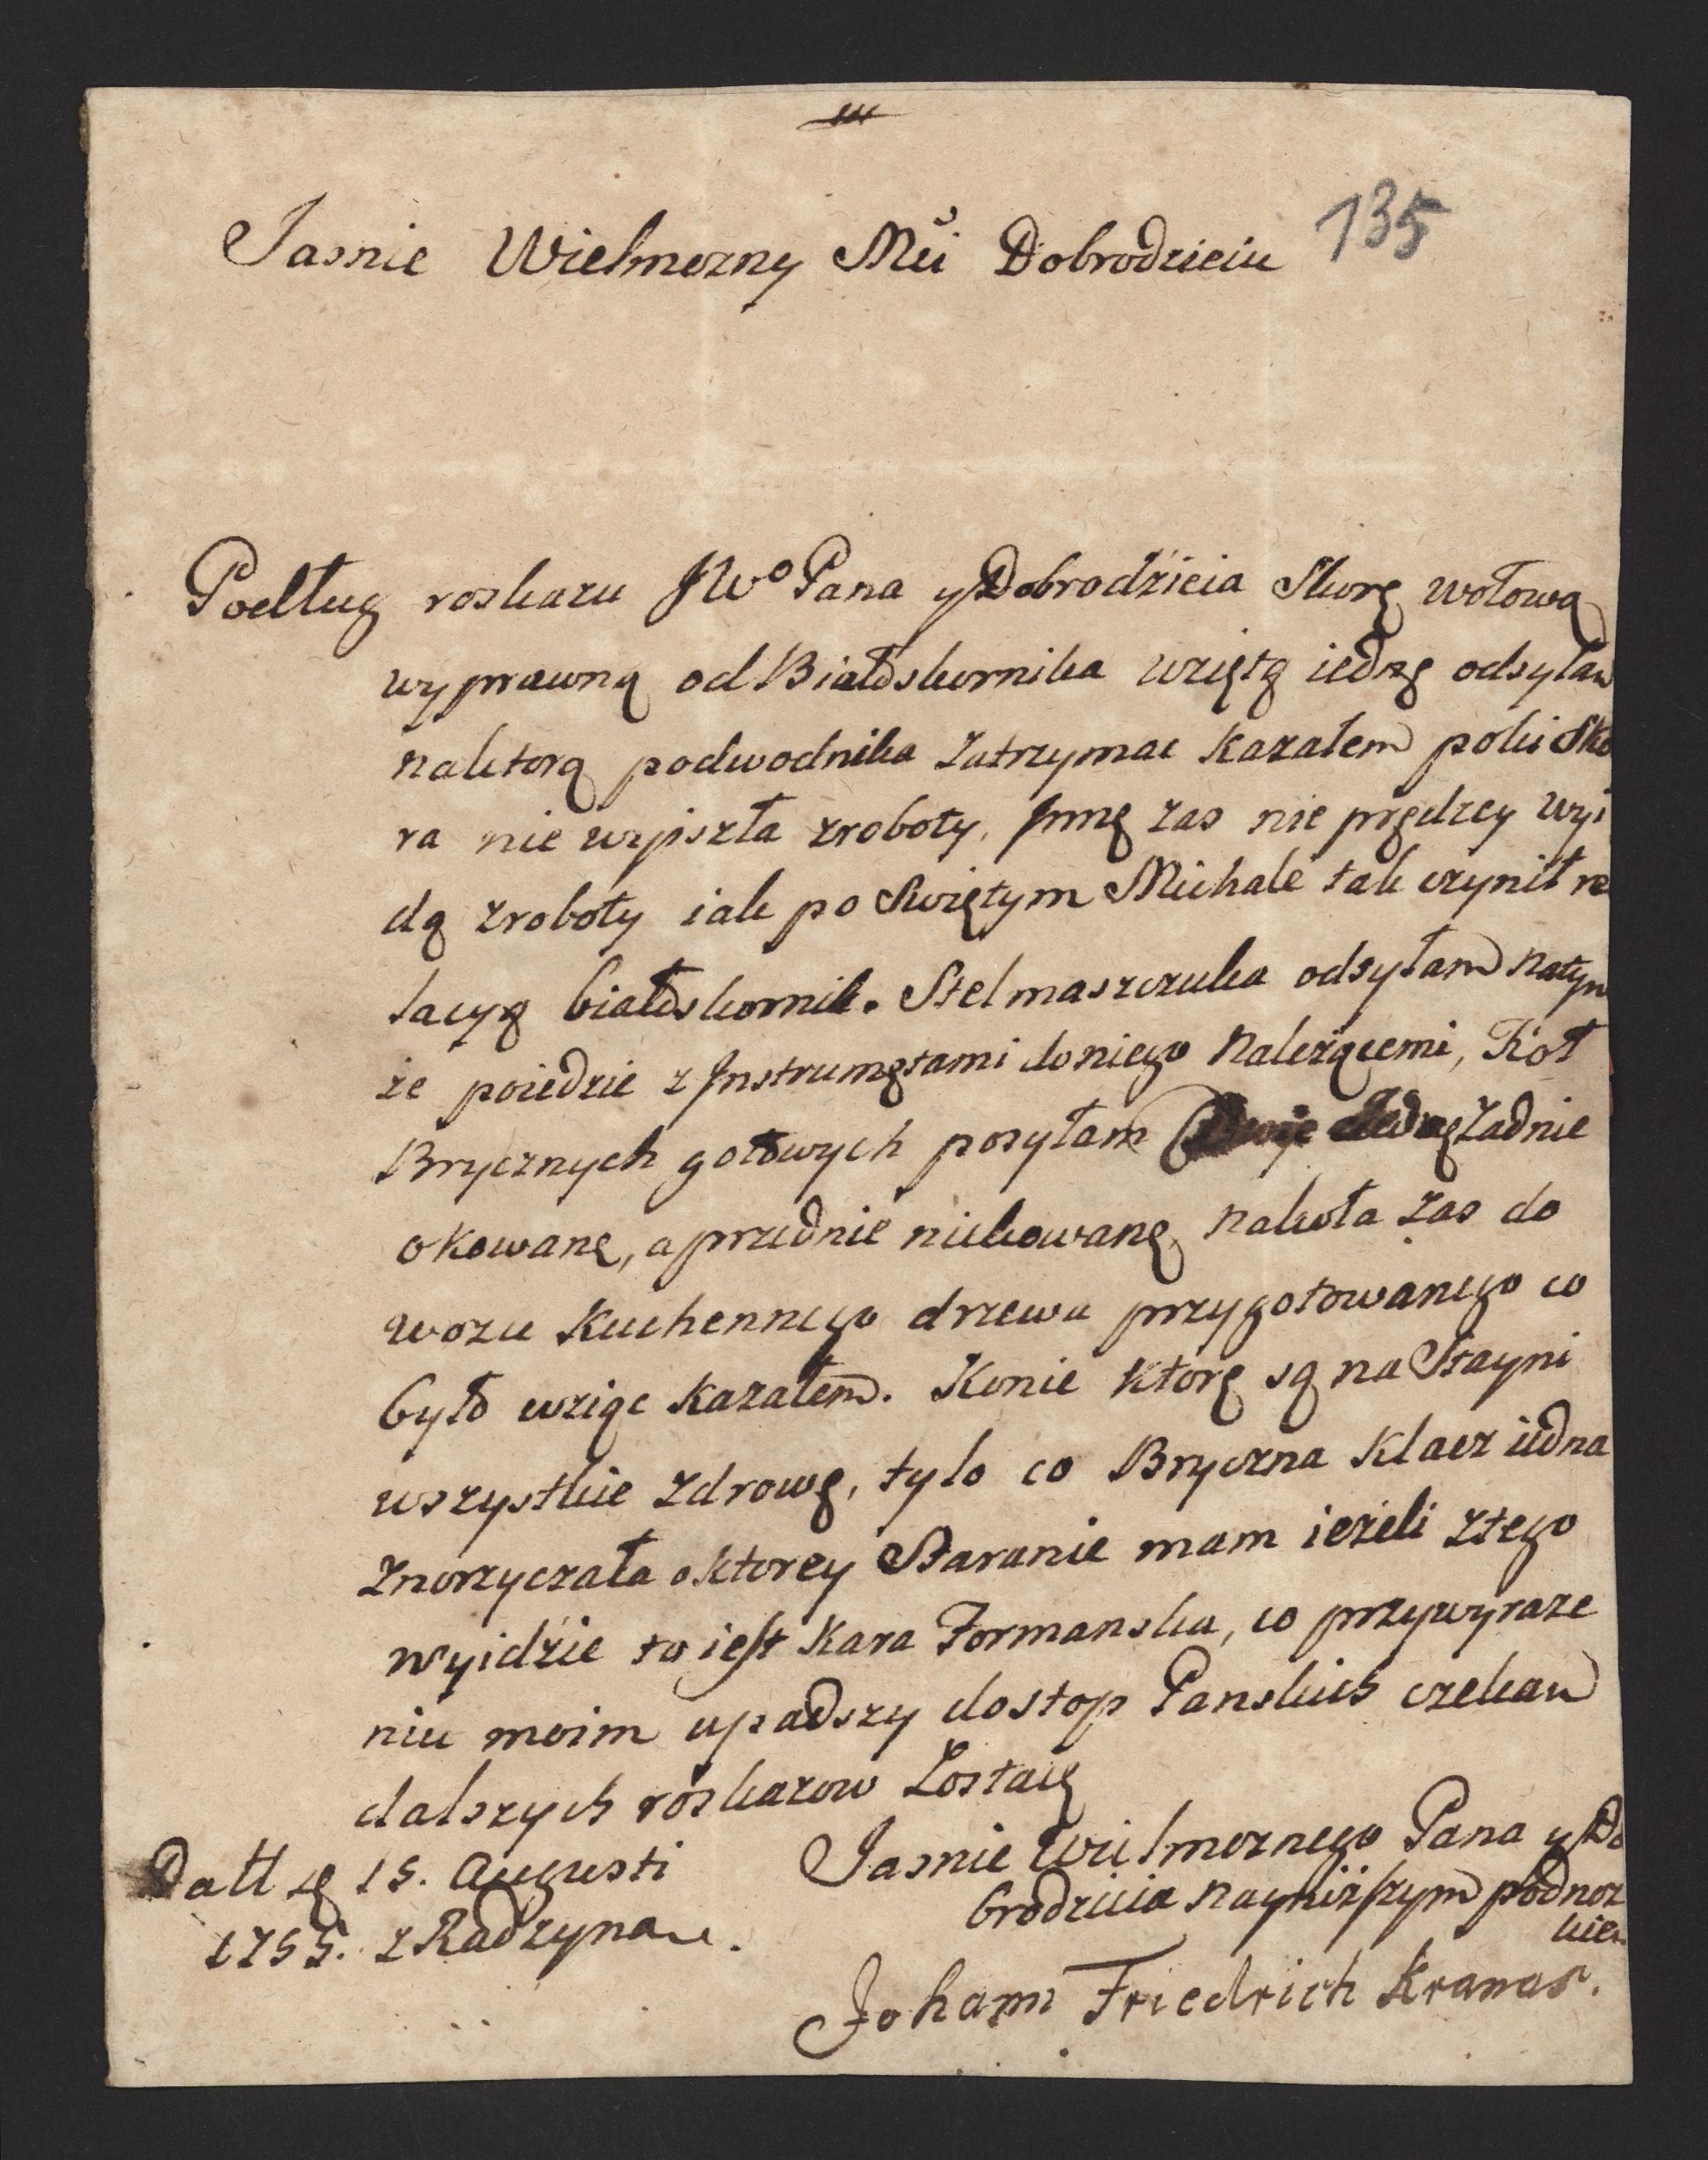 135
Jasnie Wielmozny Mći Dobrodzieiu
Podług roskazu JWo Pana y Dobrodźieia Skorę wołową
wyprawną od Białoskornika wziętą iedną odsyłam
naktorą podwodnika Zatrzymac Kazałem poki Sko
ra nie wyiszła zroboty. Jnnę zas nie prędzey wyi
dą zroboty iak po Swiętym Michale tak czynił re
lacyą białoskornik. Stelmaszczuka odsyłam natym
że poiedzie z Jnstrumętami do niego Nalezącemi, Koł
Brycznych gotowych posyłam Zadnie
okowanę, a przednie niekowanę, Nakoła zas do
wozu Kuchennego drzewa przygotowanego co
było wziąc Kazałem. Konie Ktorę są na Stayni
wszystkie Zdrowę, tylo co Bryczna Klacz iedna
Znorzyczała o Ktorey Staranie mam ieżeli Ztego
Wyidźie to iest Kara Formanska, co przywyraze
niu moim upadszy dostop Panskich czekam
dalszych roskazow Zostaię
Jasnie Wielmoznego Pana y Do
brodzieia Nayniższym podnoz
kiem
Johann Friedrich Kramar.
Datt d 15. Augusti
1755. z Radzyna